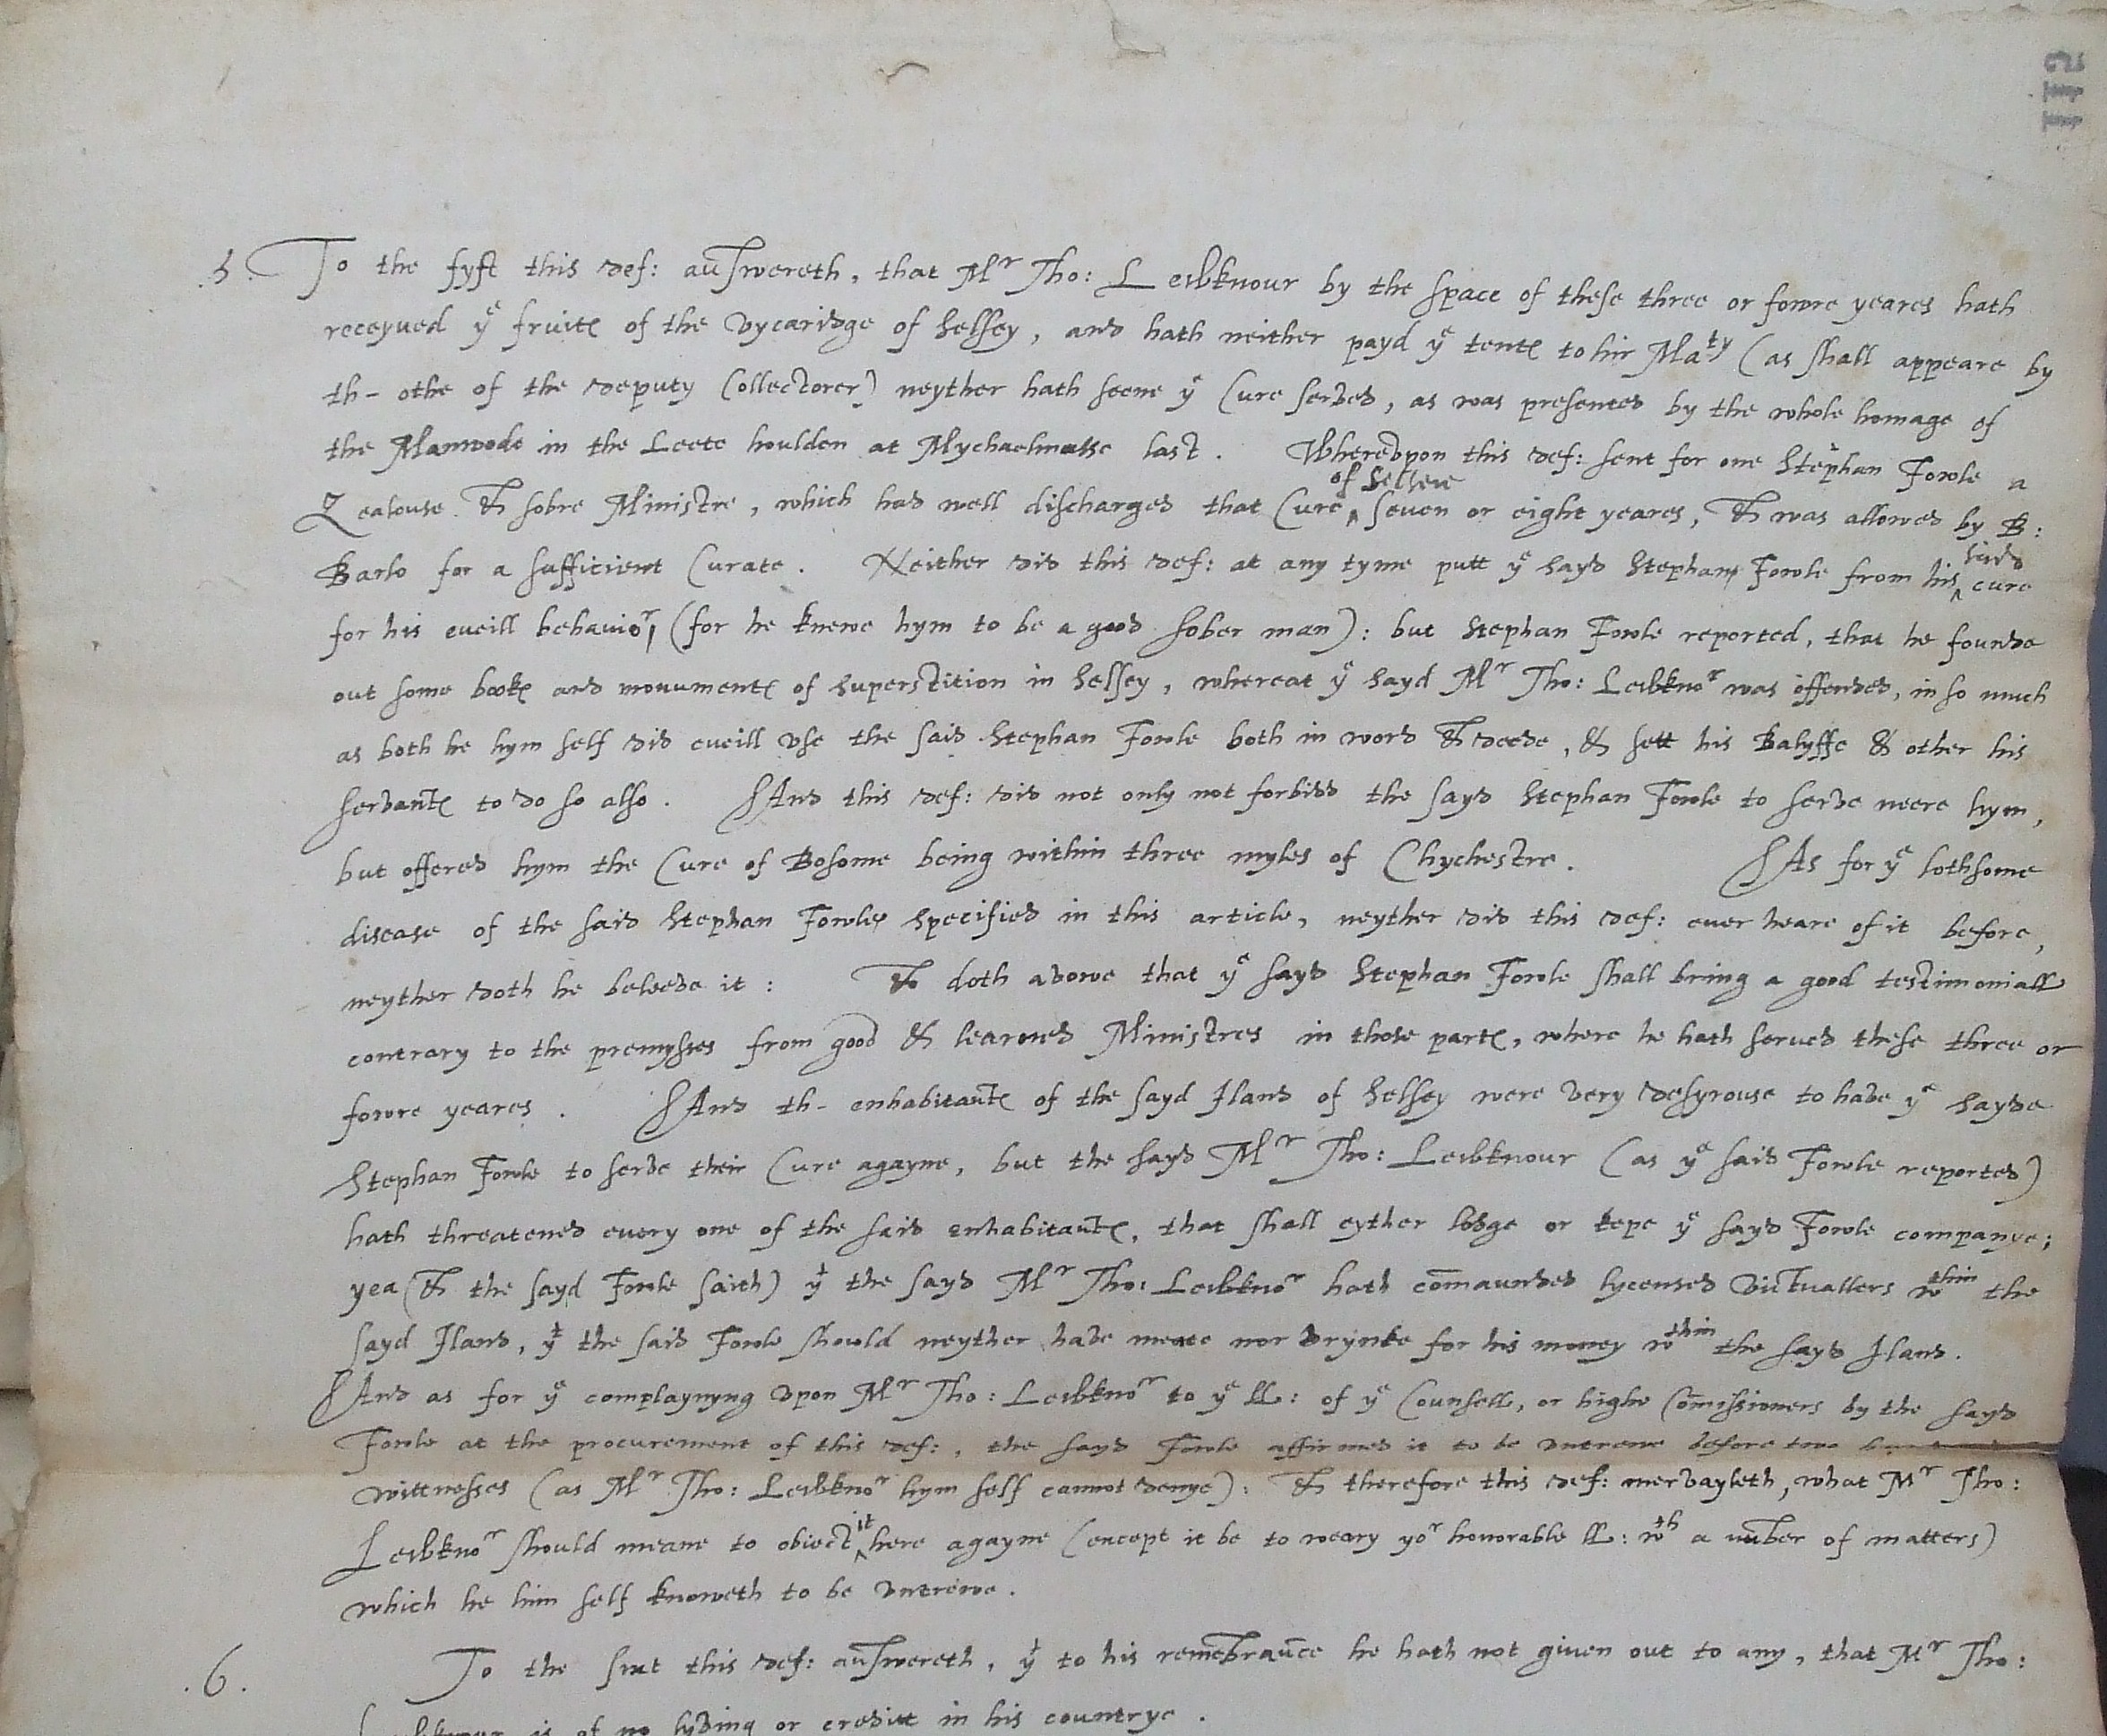 112
.5. To the fyft this def: aūswereth, that Mr Tho: Lewknour by the space of these three or fowre yeares hath
receyued ye fruites of the vycaridge of Selsey, and hath neither payd ye tentes to hir Maty (as shall appeare by
th- othe of the deputy Collectorer) neyther hath seene ye Cure served, as was presented by the whole homage of
the Manwode in the Leete houlden at Mychaelmasse last. Wherevpon this def: sent for one Stephan Fowle a
Zealouse & sobre Ministre, which had well discharged that Cure ^of Selsey seven or eight yeares, & was allowed by B:
Barlo for a sufficient Curate. Neither did this def: at any tyme putt ye sayd Stephan Fowle from his ^said cure
for his eveill behavior, (for he knewe hym to be a good sober man): but Stephan Fowle reported, that he founde
out some bookes and monumentes of superstition in Selsey, whereat ye sayd Mr Tho: Lewknor was offended, in so much
as both he hym self did eveill vse the said Stephan Fowle both in word & deede, & sett his Balyffe & other his
servantes to do so also. And this def: did not only not forbidd the sayd Stephan Fowle to serve neere hym,
but offered hym the Cure of Bosome being within three myles of Chychestre. As for ye lothsome
disease of the said Stephan Fowle specified in this article, neyther did this def: ever heare of it before,
neyther doth he beleeve it: & doth avowe that ye sayd Stephan Fowle shall bring a good testimoniall
contrary to the premysses from good & learned Ministres in those partes, where he hath served these three or
fowre yeares. And th- enhabitaūtes of the sayd Iland of Selsey were very desyrouse to have ye sayde
Stephan Fowle to serve their Cure agayne, but the sayd Mr Tho: Lewknour (as ye said Fowle reported)
hath threatened every one of the said enhabitaūtes, that shall eyther lodge or kepe ye sayd Fowle companye;
yea (& the sayd Fowle saith) yt the sayd Mr Tho: Lewknor hath cōmaunded lycensed victuallers wthin the
sayd Iland, yt the said Fowle should neyther have meate nor drynke for his money wthin the sayd Iland.
And as for ye complaynyng vpon Mr Tho: Lewknor to ye LL: of ye Counsell, or highe Cōmissioners by the sayd
Fowle at the procurement of this def:, the sayd Fowle affirmed it to be vntrewe before two
wittnesses (as Mr Tho: Lewknor hym self cannot denye): & therefore this def: mervayleth, what Mr Tho:
Lewknor should meane to obiect ^it here agayne (except it be to weary yor honorable LL: wth a nūber of matters)
which he him self knoweth to be vntrewe.
.6. To the sixt this def: aūswereth, yt to his remēbraūce he hath not given out to any, that Mr Tho:
Lewknour is of no lyving or creditt in his countrye.